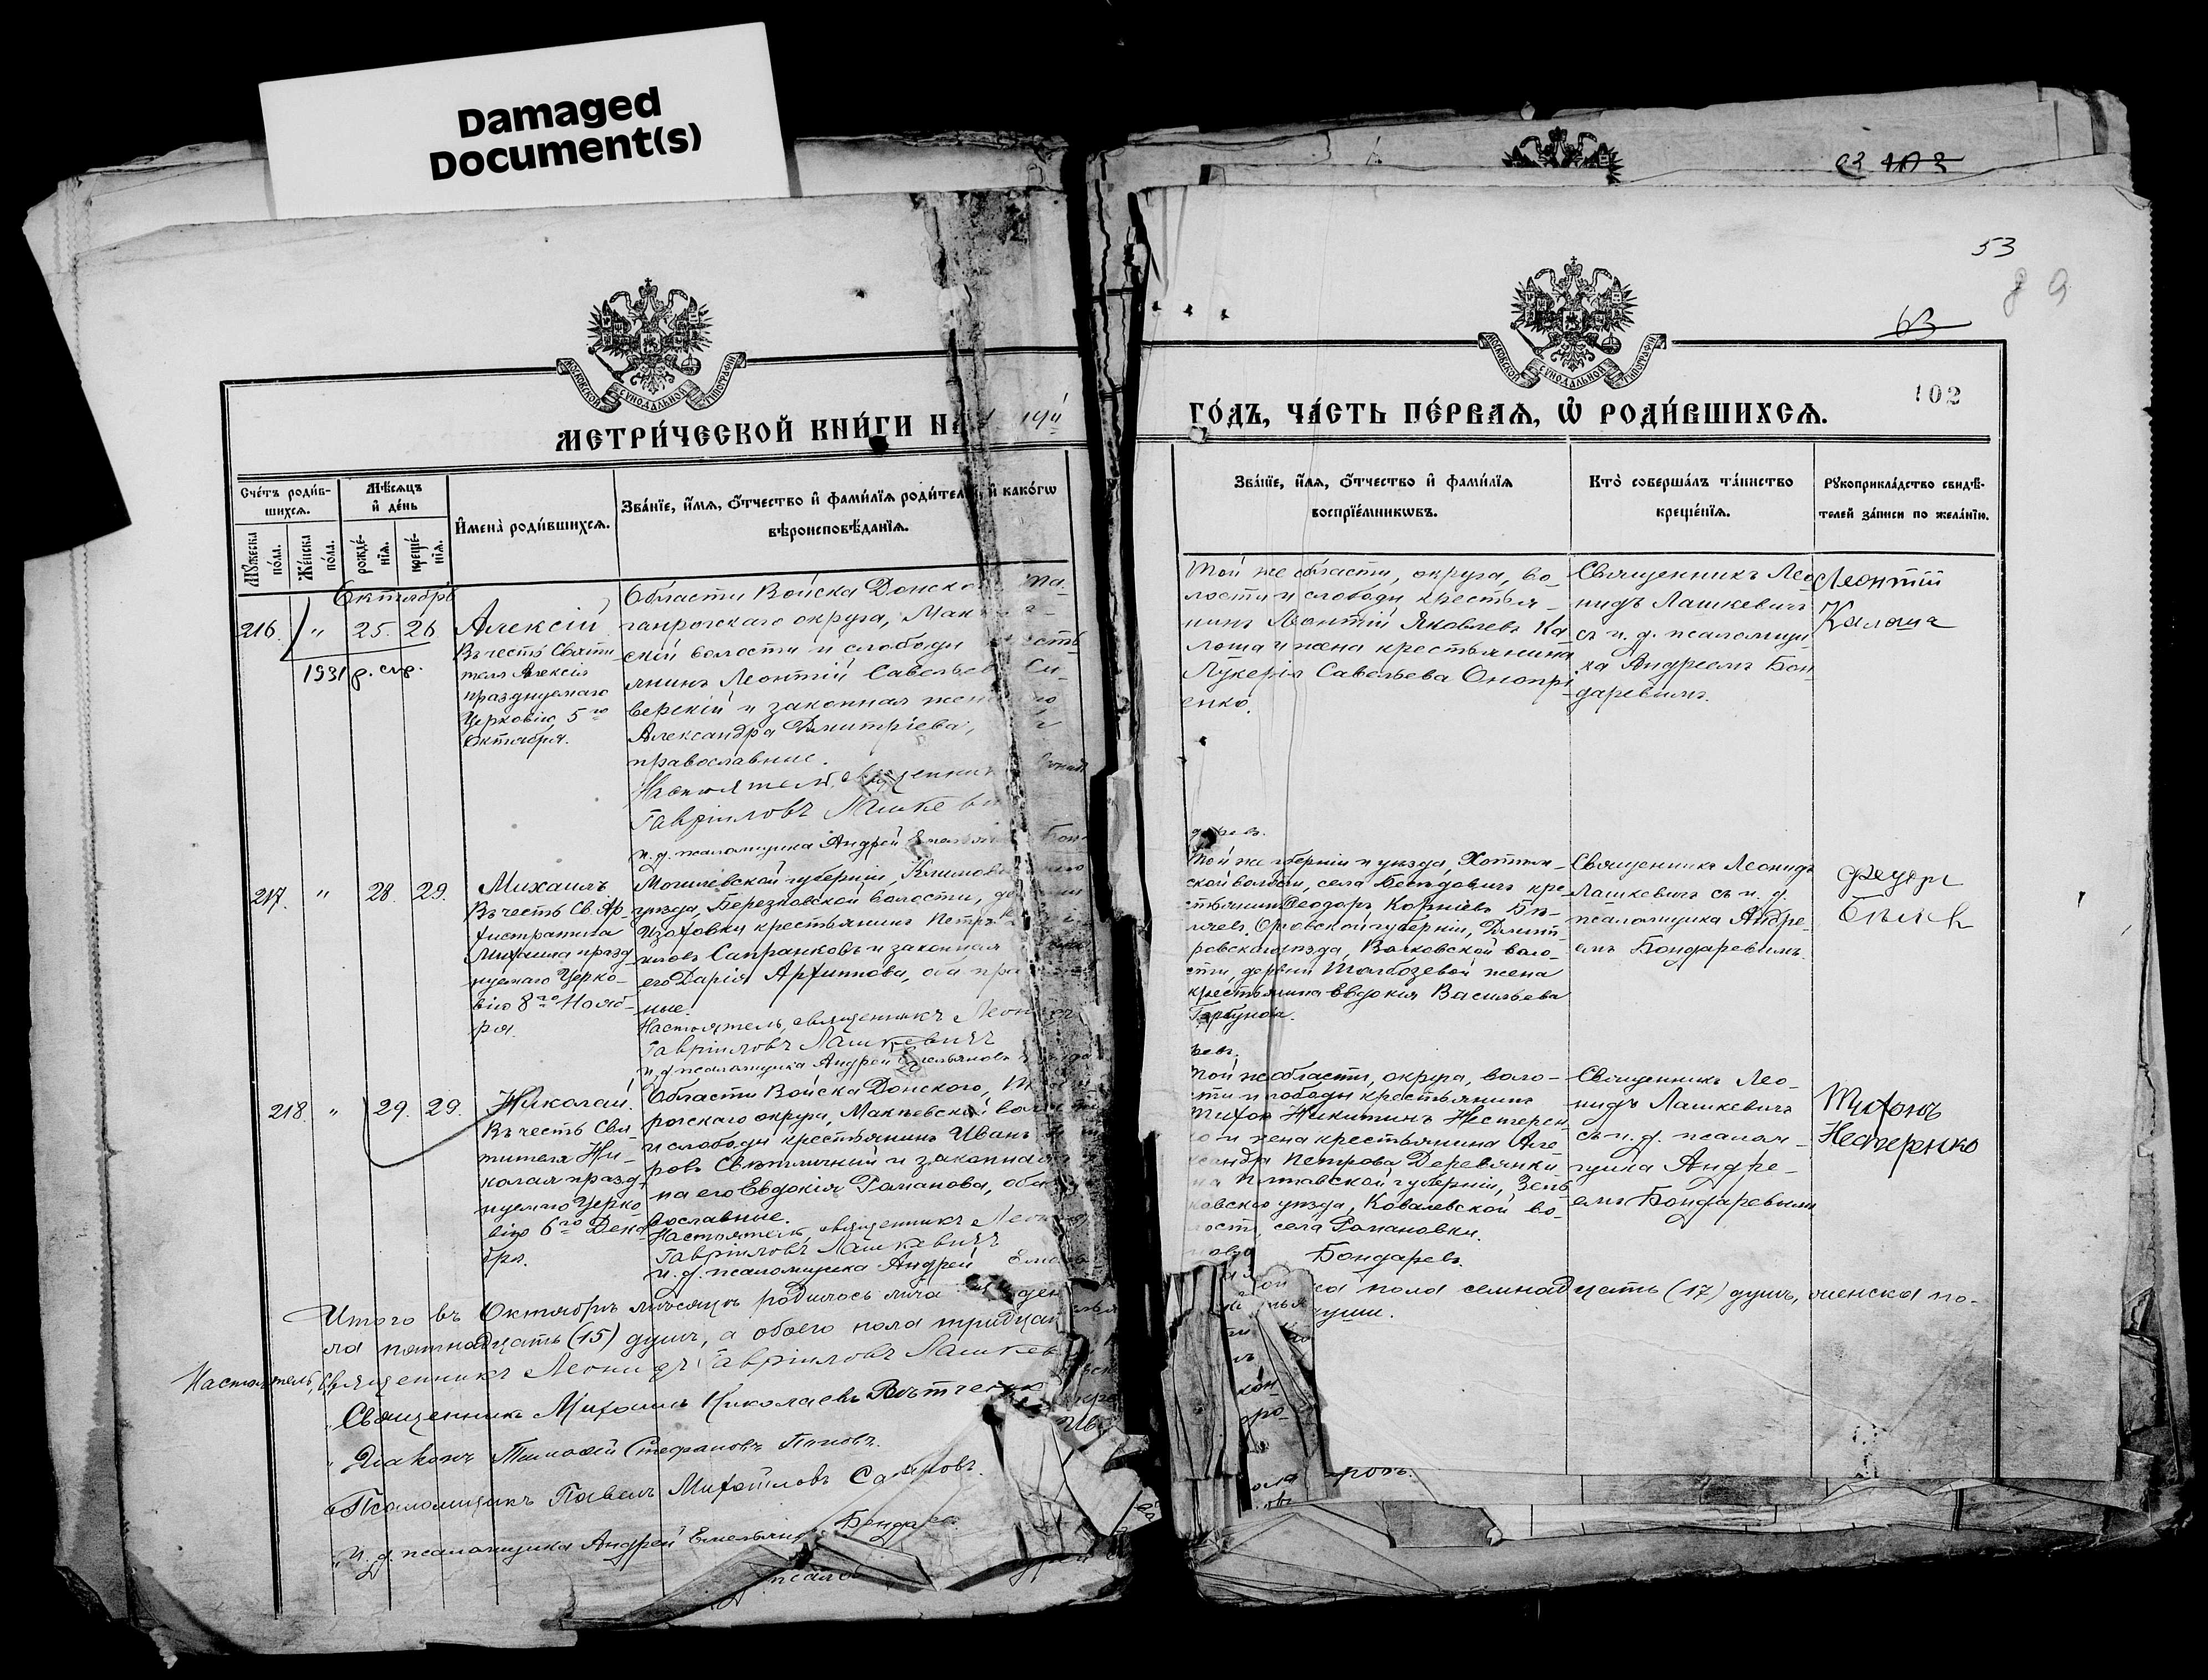 Damaged
Document(s)
53
8 9
63
102
МОСКОВСКОЙ СѴНОДАЛЬНОЙ ТИПОГРАФІИ
МОСКОВСКОЙ СѴНОДАЛЬНОЙ ТИПОГРАФІИ
МЕТРИ́ЧЕСКОЙ КНИ́ГИ НА 1911
ГО́ДЪ, ЧА́СТЬ ПЕ́РВАѦ, Ѡ҆ РОДИ́ВШИХСѦ.
Сче́тъ роди́в-
шихсѧ.
Мꙋ́жеска по́ла.
Же́нска по́ла.
Мѣ́сѧцъ
и҆ де́нь
рожде́-
нїѧ.
креще́-
нїѧ.
И҆мена̀ роди́вшихсѧ.
Зва́нїе, и҆́мѧ, ѻ҆́тчество и҆ фами́лїѧ роди́телей, и҆ како́гѡ
вѣроисповѣ́данїѧ.
Зва́нїе, и҆́мѧ, ѻ҆́тчество и҆ фами́лїѧ
воспрїе́мникѡвъ.
Кто̀ соверша́лъ та́инство
креще́нїѧ.
Рꙋкоприкла́дство свидѣ́-
телей за́писи по жела́нїю.
Октябрь
216. " 25. 26.
1931 р. сл.
Алексій
Въ честь Святи
теля Алексія
празднуемаго
Церковію 5го
Октября.
Области Войска Донско Та-
ганрогскаго округа, Мак
ской волости и слободы
янинъ Леонтій Савельев Си-
верскій и законная жен
Александра Димитріева,
православные.
Настоятель, священник
Гавріиловъ Лашкеви
и. д. псаломщика Андрей Бон
Той же области, округа, во-
лости и слободы крестья-
нинъ Леонтій Яковлевъ Ка
лоша и жена крестьянина
Лукерія Савельева Онопрі
енко.
Священникъ Лео
нидъ Лашкевичъ
съ и. д. псаломщи
ка Андреемъ Бон
даревымъ.
Леонтій
Калоша
217. " 28. 29.
Михаилъ
Въ честь Св. Ар-
хистратига
Михаила празд
нуемаго Церко-
вію 8го Нояб-
ря.
Могилевской губерніи, Климов
уѣзда, Березковской волости, де
Изотовки крестьянинъ Петръ
иловъ Сапранковъ и законная
его Дарія Архипова, оба пра
ные.
Настоятель, священникъ Леонидъ
Гавріиловъ Лашкевичъ
и. д. псаломщика Андрей Емельяновъ
Той же губерніи и уѣзда, Хотим-
ской волости, села Беседовичъ кре
стьянинъ Ѳеодоръ Корніевъ Бѣ-
ляевъ, Орловской губерніи, Дмит-
ровскаго уѣзда, Волковской воло-
сти, деревни жена
крестьянина Евдокія Васильева
Горбунова.
Священникъ Леонидъ
Лашкевичъ съ и. д.
псаломщика Андре-
емъ Бондаревымъ.
218. " 29. 29.
Николай.
Въ честь Свя-
тителя Ни-
колая празд-
нуемаго Церко
вію 6го Дека
бря.
Области Войска Донского,
рогскаго округа, Макѣевской вол
и слободы крестьянинъ Иванъ
ровъ Свѣтличный и законная
на его Евдокія Романова, оба
вославные.
Настоятель, священникъ Леонид
Гавріиловъ Лашкевичъ
и. д. псаломщика Андрей Емель
Той же области, округа, воло-
сти и слободы крестьянинъ
Тихон Никитинъ Нестерен
ко и жена крестьянина Але
ксандра Петрова Деревянки
на Полтавской губерніи, Зень
ковскаго уѣзда, Ковалевской во-
лости, села Романовки.
Бондаревъ.
Священникъ Лео-
нидъ Лашкевичъ
съ и. д. псалом-
щика Андре-
емъ Бондаревымъ
Тихонъ
Нестеренко
Итого въ Октябрѣ мѣсяцѣ родилось
ска пола семнадцать (17) душъ, женска по-
ла пятнадцать (15) душъ, а обоего пола тридцат
души.
Настоятель, Священникъ Леонидъ Гавріиловъ Лашкев
Священникъ Михаилъ Николаевъ
Діаконъ Тимоѳей Стефановъ Поповъ.
Псаломщикъ Павелъ Михайловъ
и. д. псаломщика Андрей Емельянов Бондарев